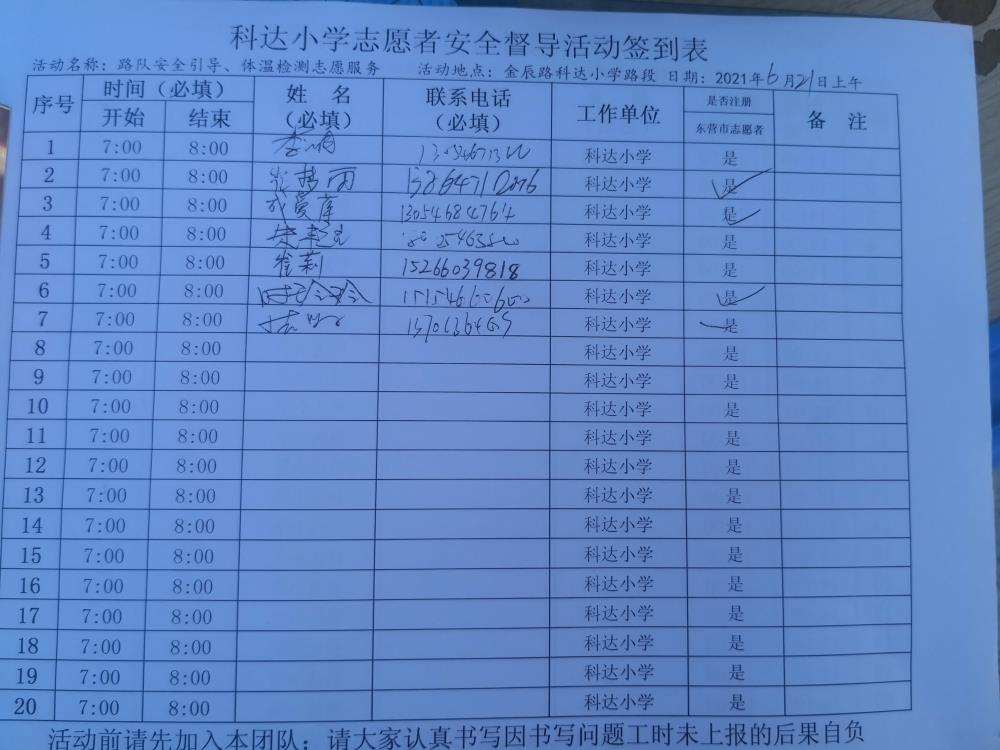 科达小学志愿者安全督导活动签到表
活动名称：路队安全引导、体温检测志愿服务 活动地点：金辰路科达小学路段 日期：2021年6月21日上午
序号 时间（必填） 姓名（必填） 联系电话（必填） 工作单位 是否注册东营市志愿者 备注
开始 结束
1 7:00 8:00 科达小学 是
2 7:00 8:00 科达小学 是
3 7:00 8:00 13054684764 科达小学 是
4 7:00 8:00 科达小学 是
5 7:00 8:00 崔莉 15266039818 科达小学 是
6 7:00 8:00 科达小学 是
7 7:00 8:00 科达小学 是
8 7:00 8:00 科达小学 是
9 7:00 8:00 科达小学 是
10 7:00 8:00 科达小学 是
11 7:00 8:00 科达小学 是
12 7:00 8:00 科达小学 是
13 7:00 8:00 科达小学 是
14 7:00 8:00 科达小学 是
15 7:00 8:00 科达小学 是
16 7:00 8:00 科达小学 是
17 7:00 8:00 科达小学 是
18 7:00 8:00 科达小学 是
19 7:00 8:00 科达小学 是
20 7:00 8:00 科达小学 是
活动前请先加入本团队；请大家认真书写因书写问题工时未上报的后果自负